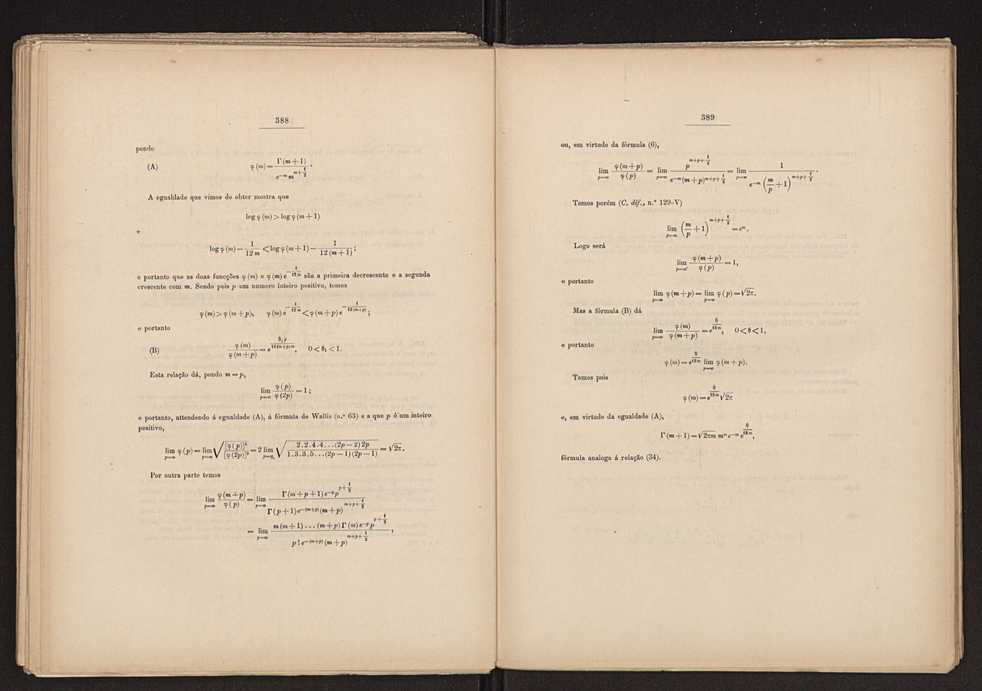 388
pondo
(A) φ(m) = Γ(m+1) / (e^{-m} m^{m+1/2}) .
A egualdade que vimos de obter mostra que
log φ(m) > log φ(m+1)
e
log φ(m) − 1/(12m) < log φ(m+1) − 1/(12(m+1)) ;
e portanto que as duas funcções φ(m) e φ(m) e^{−1/(12m)} são a primeira decrescente e a segunda
crescente com m. Sendo pois p um numero inteiro positivo, temos
φ(m) > φ(m+p), φ(m) e^{−1/(12m)} < φ(m+p) e^{−1/(12(m+p))} ;
e portanto
(B) φ(m)/φ(m+p) = e^{θ₁p/(12(m+p)m)}, 0 < θ₁ < 1.
Esta relação dá, pondo m = p,
lim_{p=∞} φ(p)/φ(2p) = 1 ;
e portanto, attendendo á egualdade (A), á fórmula de Wallis (n.º 63) e a que p é um inteiro
positivo,
lim_{p=∞} φ(p) = lim_{p=∞} √([φ(p)]⁴/[φ(2p)]²) = 2 lim_{p=∞} √(2.2.4.4...(2p−2)2p / 1.3.3.5...(2p−1)(2p−1)) = √2π.
Por outra parte temos
lim_{p=∞} φ(m+p)/φ(p) = lim_{p=∞} Γ(m+p+1) e^{−p} p^{p+1/2} / (Γ(p+1) e^{−(m+p)} (m+p)^{m+p+1/2})
= lim_{p=∞} m(m+1)...(m+p) Γ(m) e^{−p} p^{p+1/2} / (p! e^{−(m+p)} (m+p)^{m+p+1/2}) ,
389
ou, em virtude da fórmula (6),
lim_{p=∞} φ(m+p)/φ(p) = lim_{p=∞} p^{m+p+1/2} / (e^{−m} (m+p)^{m+p+1/2}) = lim_{p=∞} 1 / (e^{−m} (m/p + 1)^{m+p+1/2}) .
Temos porém (C. dif., n.º 129-V)
lim_{p=∞} (m/p + 1)^{m+p+1/2} = e^m.
Logo será
lim_{p=∞} φ(m+p)/φ(p) = 1,
e portanto
lim_{p=∞} φ(m+p) = lim_{p=∞} φ(p) = √2π.
Mas a fórmula (B) dá
lim_{p=∞} φ(m)/φ(m+p) = e^{θ/(12m)}, 0 < θ < 1,
e portanto
φ(m) = e^{θ/(12m)} lim_{p=∞} φ(m+p).
Temos pois
φ(m) = e^{θ/(12m)} √2π
e, em virtude da egualdade (A),
Γ(m+1) = √2πm m^m e^{−m} e^{θ/(12m)},
fórmula analoga á relação (34).